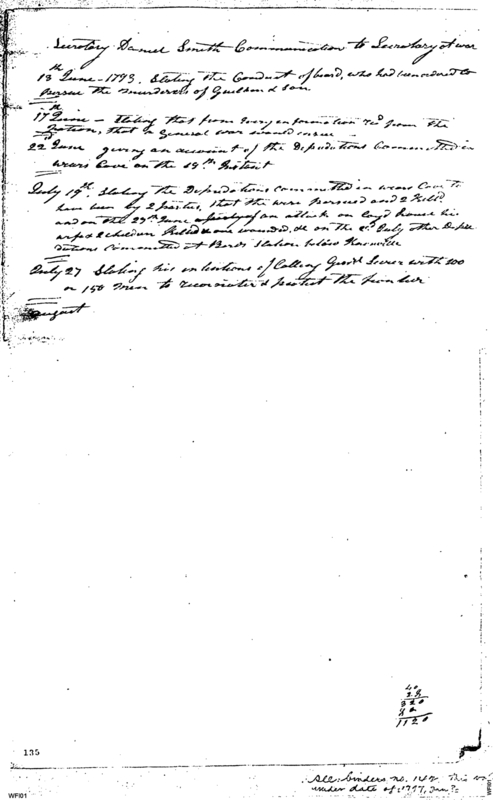 Secretary Daniel Smith Communication to Secretary at war
13th June - 1793. Stating the Conduct of beard, who had been ordered to
persue the murderers of Gillham & son
17th June - Stating that from every information recd from the
Nation, that a General war would insue -
22d June giving an account of the Depredations Committed in
wears Cove on the 19th Instant
July 19th Stating the Depredations committed in wears Cove to
have been by 2 parties, that the were persued and 2 Killd
and on the 29th June of an attack on house his
wife & 2 children Killed & one wounded, & on the July other Depre
dations Committed at Bards Station below Knoxville
July 27 Stating his intentions of Calling Genl Sevier with 100
or 150 men to reconoiter & protect the frontier
August
40
28
320
80
1120
135
See binders no. 142 This
under date of 1797, Jan
WFI01
WFI01